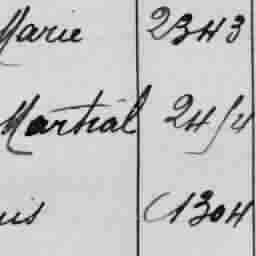 Marie 2343
Martial 24/4
uis 1304